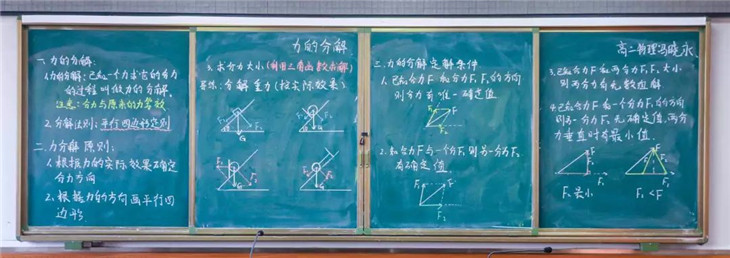 力的分解
高二物理冯晓永
一、力的分解:
1.力的分解:已知一个力求它的分力
的过程叫做力的分解。
注意:合力与原来的力等效
2.分解法则:平行四边形定则
二、力分解原则:
1.根据力的实际效果确定
分力方向
2.根据力的方向画平行四
边形.
3.求分力大小(利用三角函数求解)
实际:分解重力(按实际效果)
三、力的分解定解条件
1.已知合力F和分力F₁F₂的方向
则分力有唯一确定值
2.知合力F与一个分F₁则另一分力F₂
有确定值.
3.已知合力F和两分力F₁F₂大小
则两分力有无数组解
4.已知合力F和一个分力F₁的方向
则另一分力F₂无确定值.两分
力垂直时有最小值.
F₂最小
F₁<F